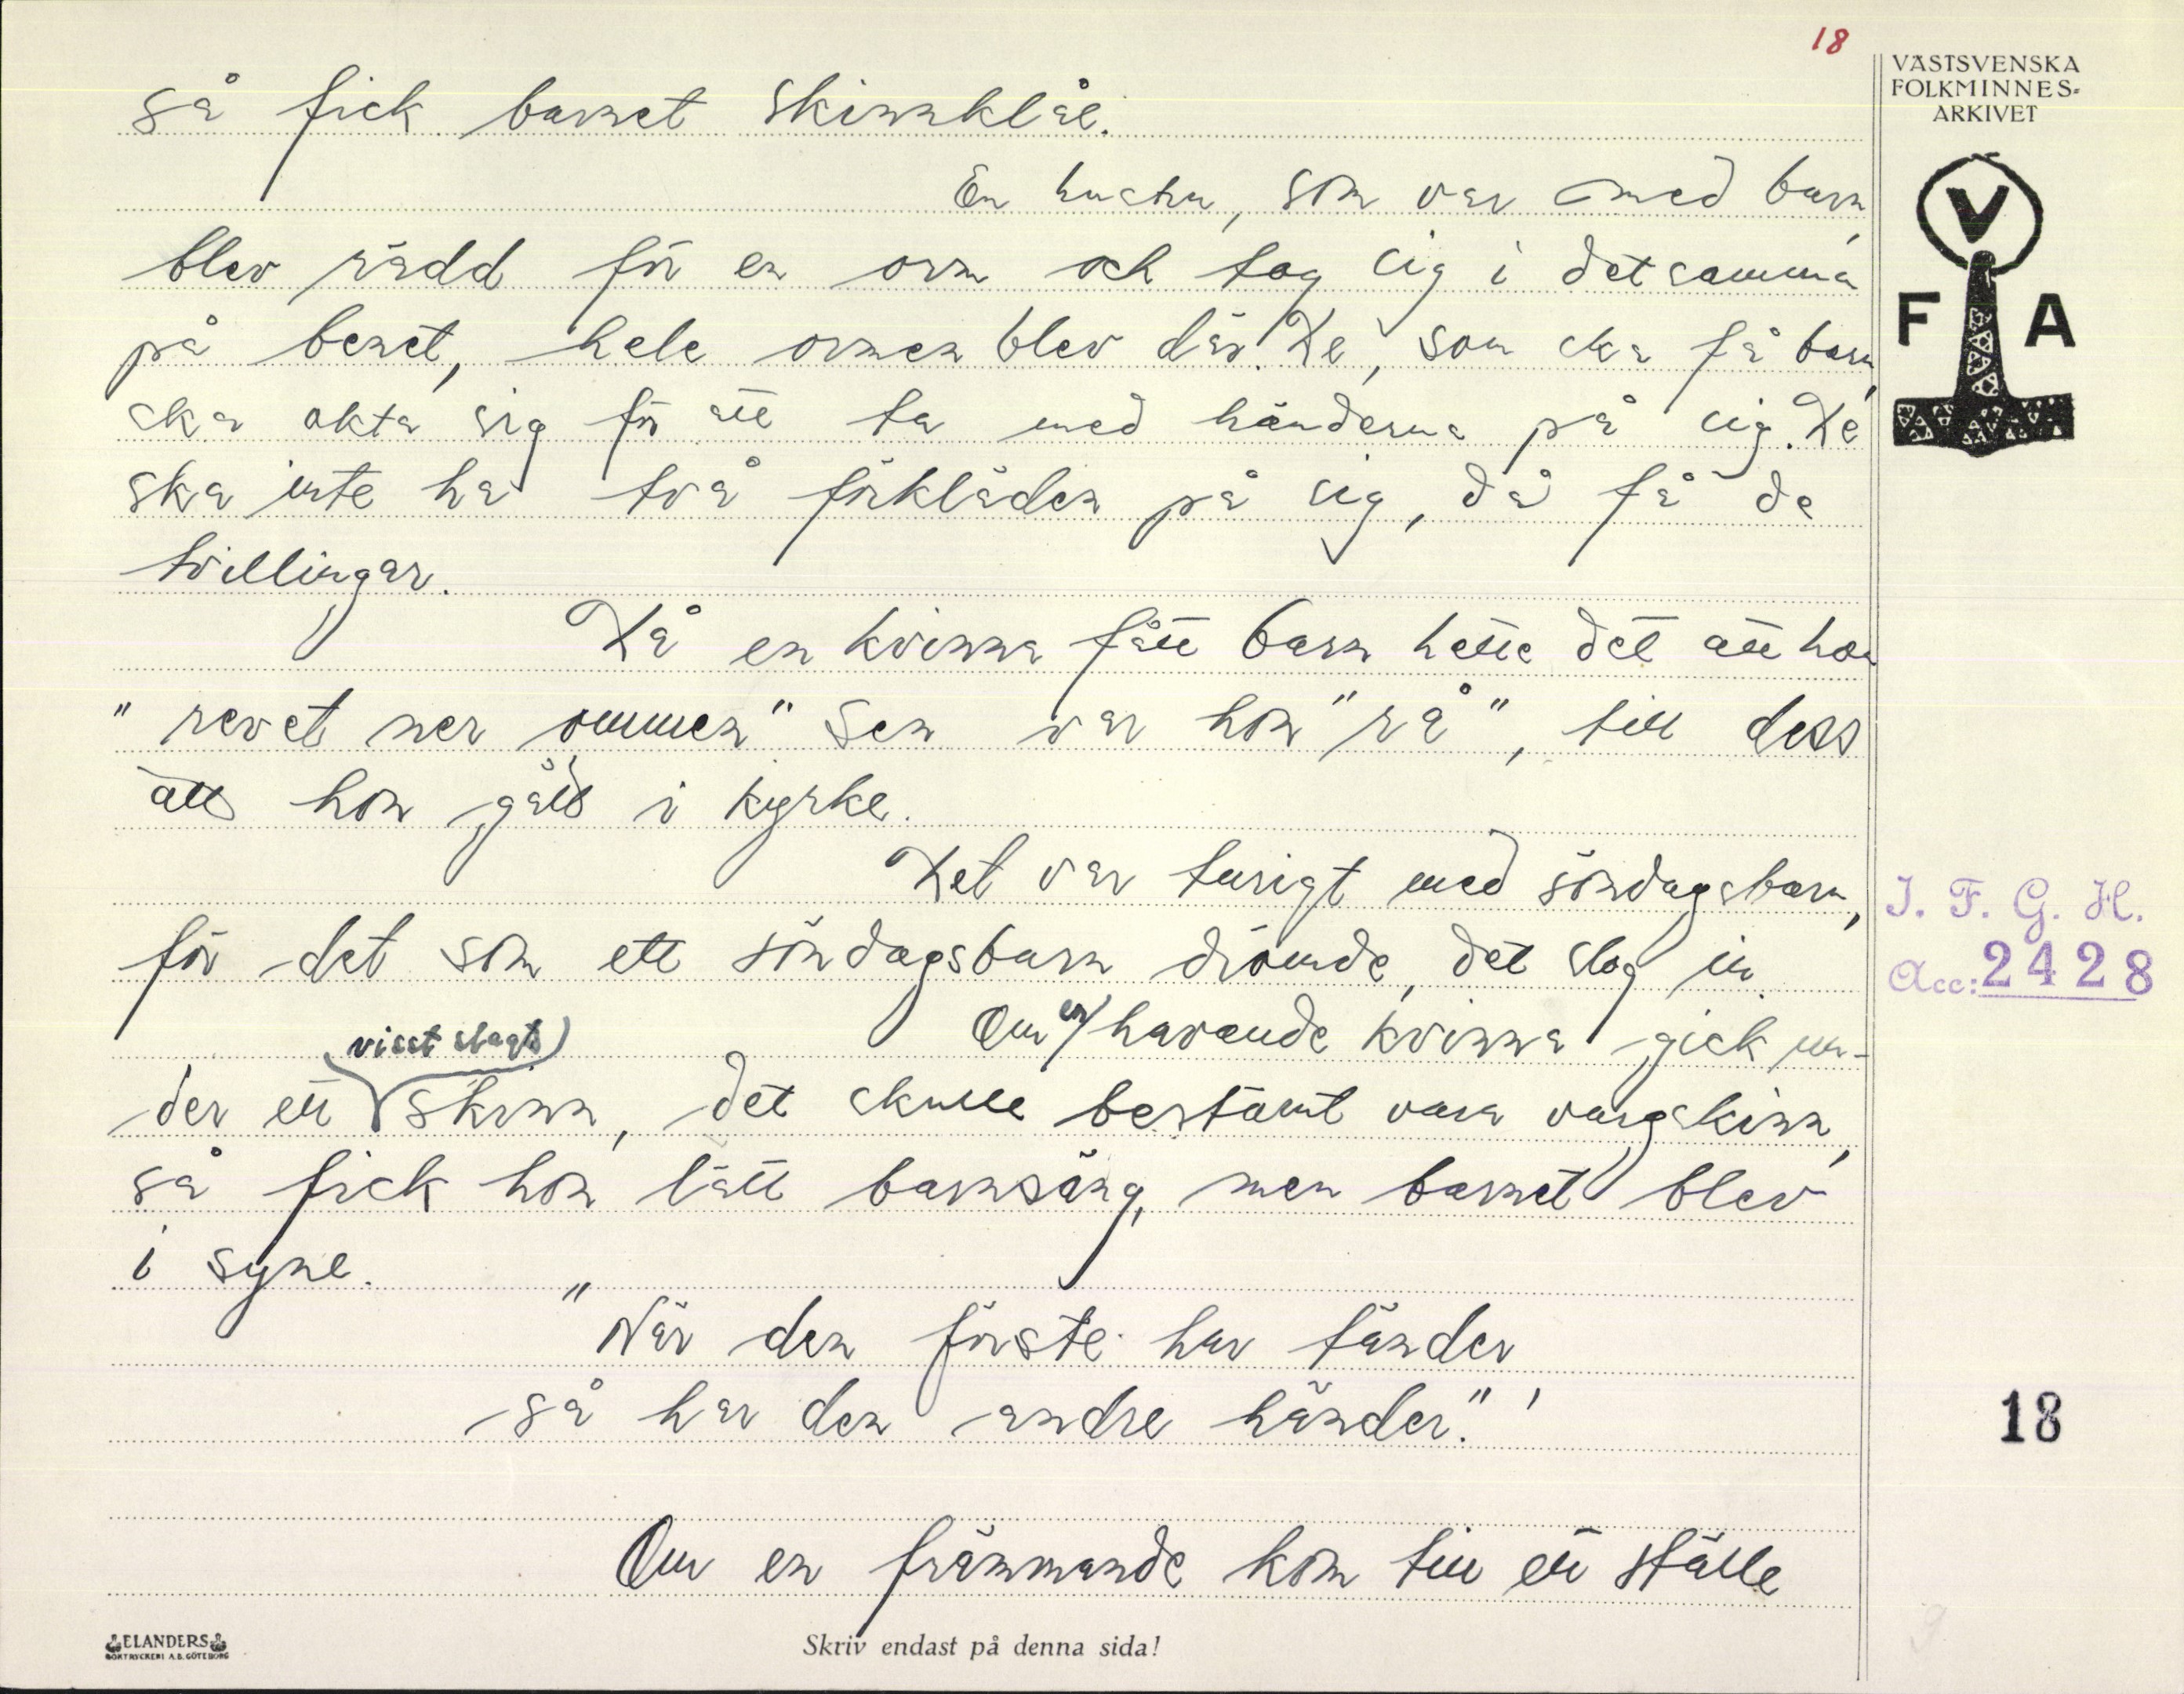 18
VÄSTSVENSKA
FOLKMINNES=
ARKIVET
V
F A
så fick barnet skinnklåe.
En hustru, som var med barn,
blev rädd för en orm och tog sig i detsamma
på benet, hele ormen blev där. De, som ska få barn,
ska akta sig för att ta med händerna på sig. De
ska inte ha två förkläden på sig, då få de
tvillingar.
Då en kvinna fått barn hette det att hon
"revet ner ommen" Sen var hon "rå", till dess
att hon gått i kyrke.
Det var turigt med söndagsbarn,
för det som ett söndagsbarn drömde, det slog in.
Om en havande kvinna gick un-
der ett visst slags skinn, det skulle bestämt vara vargskinn,
så fick hon lätt barnsäng, men barnet blev
i syne.
"När den förste har tänder
så har den andre händer."
Om en främmande kom till ett ställe
I. F. G. H.
Acc: 2428
18
ELANDERS
BOKTRYCKERI A.B. GÖTEBORG
Skriv endast på denna sida!